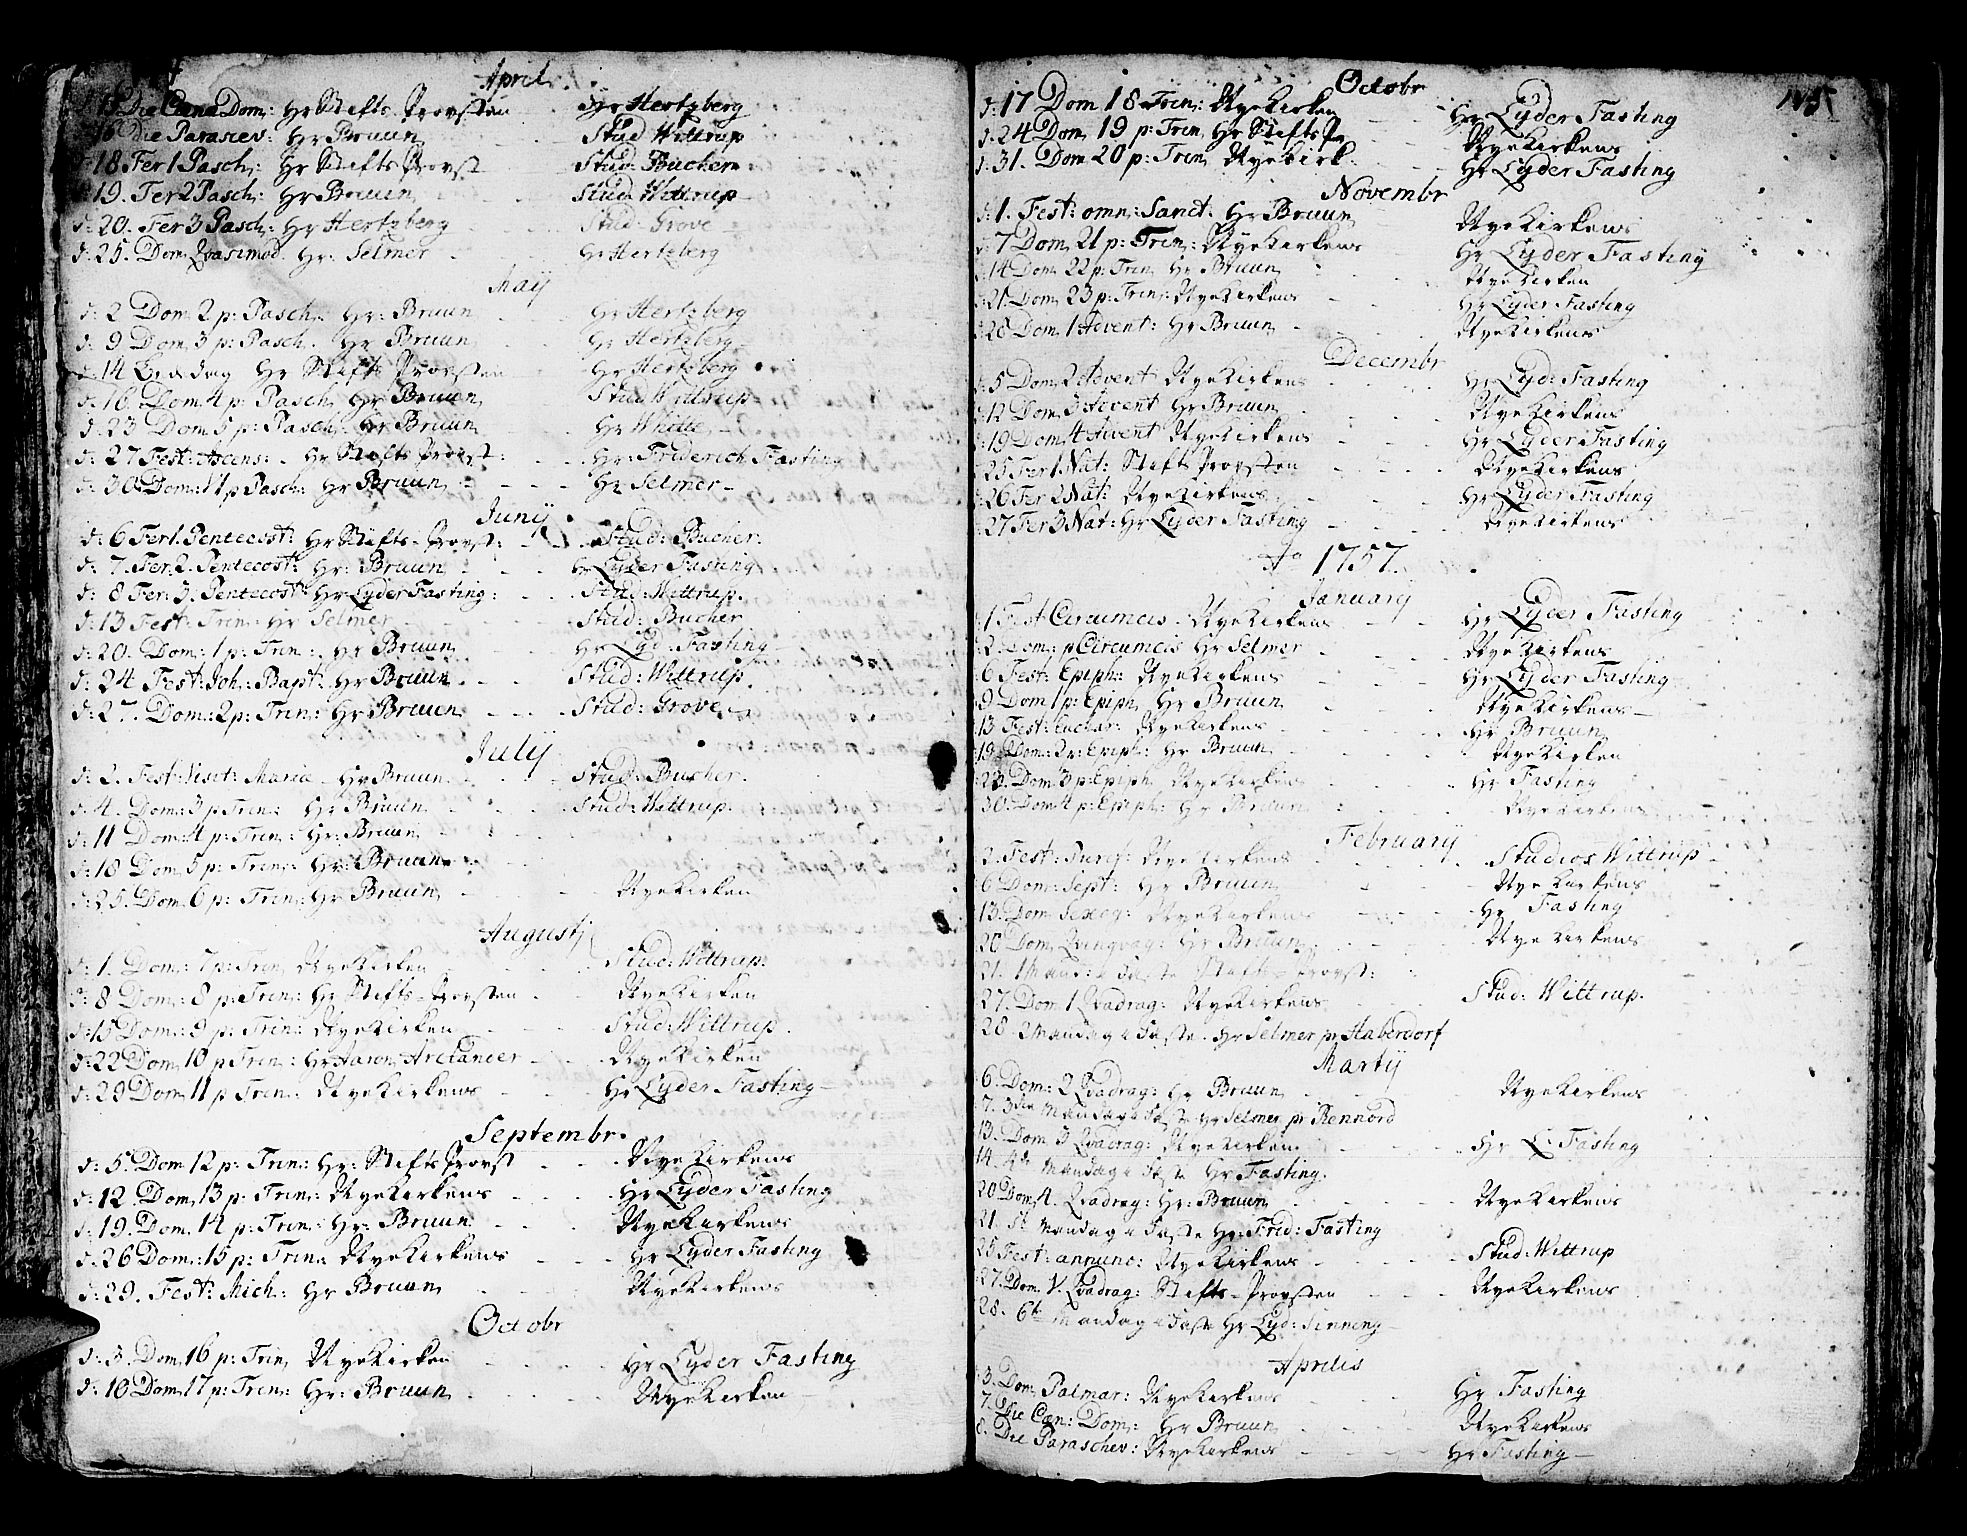 April
15 Die Cæna Dom: Hr Stifts Provsten - Hr Hertzberg
16 Die Parasiev: Hr Bruun - Stud Wittrup
18 Fer 1 Pasch: Hr Stifts Provst - Stud: Bucher
19. Fer 2 Pasch: Hr Bruun - Stud: Wittrup
d: 20. Fer 3 Pasch: Hr Hertzberg - Stud: Grove
d: 25. Dom Qvasimod. Hr: Selmer - Hr Hertzberg
Maÿ
d: 2 Dom 2 p: Pasch. Hr: Bruun - Hr Hertzberg
d: 9 Dom 3 p: Pasch. Hr Bruun - Hr Hertzberg
d: 14 Bededag Hr Stifts Provsten - Hr Hertzberg
d: 16. Dom 4 p: Pasch Hr Bruun - Stud Wittrup
d: 23 Dom 5 p: Pasch Hr Bruun - Hr Whitte
d: 27 Fest: Ascens: Hr Stifts Provst: - Hr: Friderich Fasting
d: 30 Dom: 6 p Pasch: Hr Bruun - Hr Selmer
Junÿ
d: 6 Fer 1. Pentecost: Hr Stifts-Provst: - Stud: Bucher.
d: 7. Fer. 2. Pentecost: Hr: Bruun - Hr Lyder Fasting
d: 8 Fer: 3. Pentecost: Hr Lyder Fasting: - Stud: Wittrup.
d: 13 Fest: Trin: Hr Selmer - Stud: Bucher
d: 20. Dom: 1 p: Trin: Hr Bruun - Hr Lyd: Fasting
d: 24 Fest: Joh: Bapt: Hr Bruun - Stud: Wittrup.
d: 27. Dom: 2 p: Trin: Hr Bruun - Stud: Grove
Julÿ
d: 2. Fest: Visit: Maria Hr Bruun - Stud: Bucher.
d: 4. Dom: 3 p Trin: Hr Bruun - Stud: Wittrup.
d: 11 Dom: 4 p: Trin: Hr: Bruun
d: 18 Dom 5 p: Trin: Hr: Bruun
d: 25. Dom 6 p: Trin: Hr Bruun - Nyekirken
Augustj
d: 1. Dom: 7 p: Trin Nyekirken - Stud: Wittrup.
d: 8 Dom: 8 p: Trin: Hr Stifts-Provsten - Nyekirken
d: 15 Dom: 9 p: Trin: Nyekirken - Stud: Wittrup.
d: 22 Dom 10 p Trin: Hr Aaron Arctander - Nyekirken
d: 29 Dom 11 p Trin: Nyekirkens - Hr Lyder Fasting
Septembr.
d: 5. Dom 12 p: Trin: Hr: Stifts Provst - Nyekirkens
d: 12 Dom, 13 p: Trin: Nyekirkens - Hr Lyder Fasting
d: 19. Dom. 14 p: Trin: Hr: Bruun - Nyekirkens
d: 26 Dom: 15 p: Trin: Nyekirkens - Hr Lyder Fasting
d: 29. Fest: Mich: Hr Bruun - Nyekirkens
Octobr
d: 3. Dom, 16 p: Trin, Nyekirken - Hr Lyder Fasting
d: 10 Dom, 17 p: Trin: Hr: Bruun - Nyekirken
Octobr 145
d: 17 Dom 18 Trin: Nyekirken - Hr Lyder Fasting
d. 24 Dom, 19 p: Trin, Hr Stifts Pr - Nyekirkens
d. 31. Dom 20 p: Trin, Nyekirk. - Hr Lyder Fasting
Novembr
d: 1. Fest: omn: Sanct: Hr Bruun - Nyekirkens
7 Dom, 21 p: Trin: Nyekirkens - Hr Lyder Fasting
14 Dom 22 p: Trin Hr Bruun - Nyekirken
21. Dom, 23 p: Trin: Nyekirkens - Hr Lyder Fasting
28 Dom 1 Advent: Hr Bruun - Nyekirkens
Decembr
5 Dom, 2 Advent Nyekirkens - Hr Lyd: Fasting
12 Dom, 3 Advent Hr Bruun - Nyekirkens
19 Dom, 4 Advent Nyekirkens - Hr Lyder Fasting
25 Fer 1 Nat: Stifts Provsten - Nyekirkens
26 Fer 2 Nat: Nyekirkens - Hr Lyder Fasting
27 Fer 3 Nat: Hr Lyder Fasting - Nyekirkens
Ao 1757.
Januarÿ
1 Fest Circumcis. Nyekirkens - Hr Lyder Fasting
2. Dom: p Circumcis Hr Selmer - Nyekirkens
6 Fest: Epiph: Nyekirkens - Hr Lyder Fasting
9 Dom 1 p: Epiph Hr Bruun - Nyekirkens
13 Fest: Nyekirkens - Hr Bruun
Dom: 2 p: Epiph: Hr Bruun - Nyekirken
23 Dom 3 p: Epiph Nyekirkens - Hr Fasting
30. Dom 4 p: Epiph: Hr Bruun - Nyekirkens
Februarÿ
2. Fest: Purif: Nyekirkens - Studios Wittrup
6 Dom: Sept: Hr Bruun - Nyekirkens
13. Dom Sexag: Nyekirkens - Hr Fasting
20 Dom, Qvinqvag: Hr Bruun - Nyekirkens
21. 1 Mand: i Faste Stifts-Provst:
27. Dom 1 Qvadrag: Nyekirkens - Stud: Wittrup.
28 2 Mandag i Faste. Hr Selmer pr Haberdorf
Martÿ
6. Dom: 2 Qvadrag: Hr Bruun - Nyekirkens
7. 3die Mandag i Faste Hr Selmer pr Rennord
13. Dom 3 Qvadrag: Nyekirken - Hr L: Fasting
14. 4de Mandag i Faste Hr Fasting.
20 Dom, 4. Qvadrag: Hr: Bruun - Nyekirkens
21. 5te Mandag i Faste Hr: Frid: Fasting
25 Fest: annunc: Nyekirkens - Stud: Wittrup
27. Dom V. Qvadrag: Stifts-Provsten - Nyekirkens
28. 6te Mandag i Faste Hr Lyd:
Aprilis
3. Dom, Palmar: Nyekirkens - Hr Fasting
7. Die Cæn: Dom: Hr Bruun - Nyekirkens
8. Die Paraschev: Nyekirkens - Hr Fasting